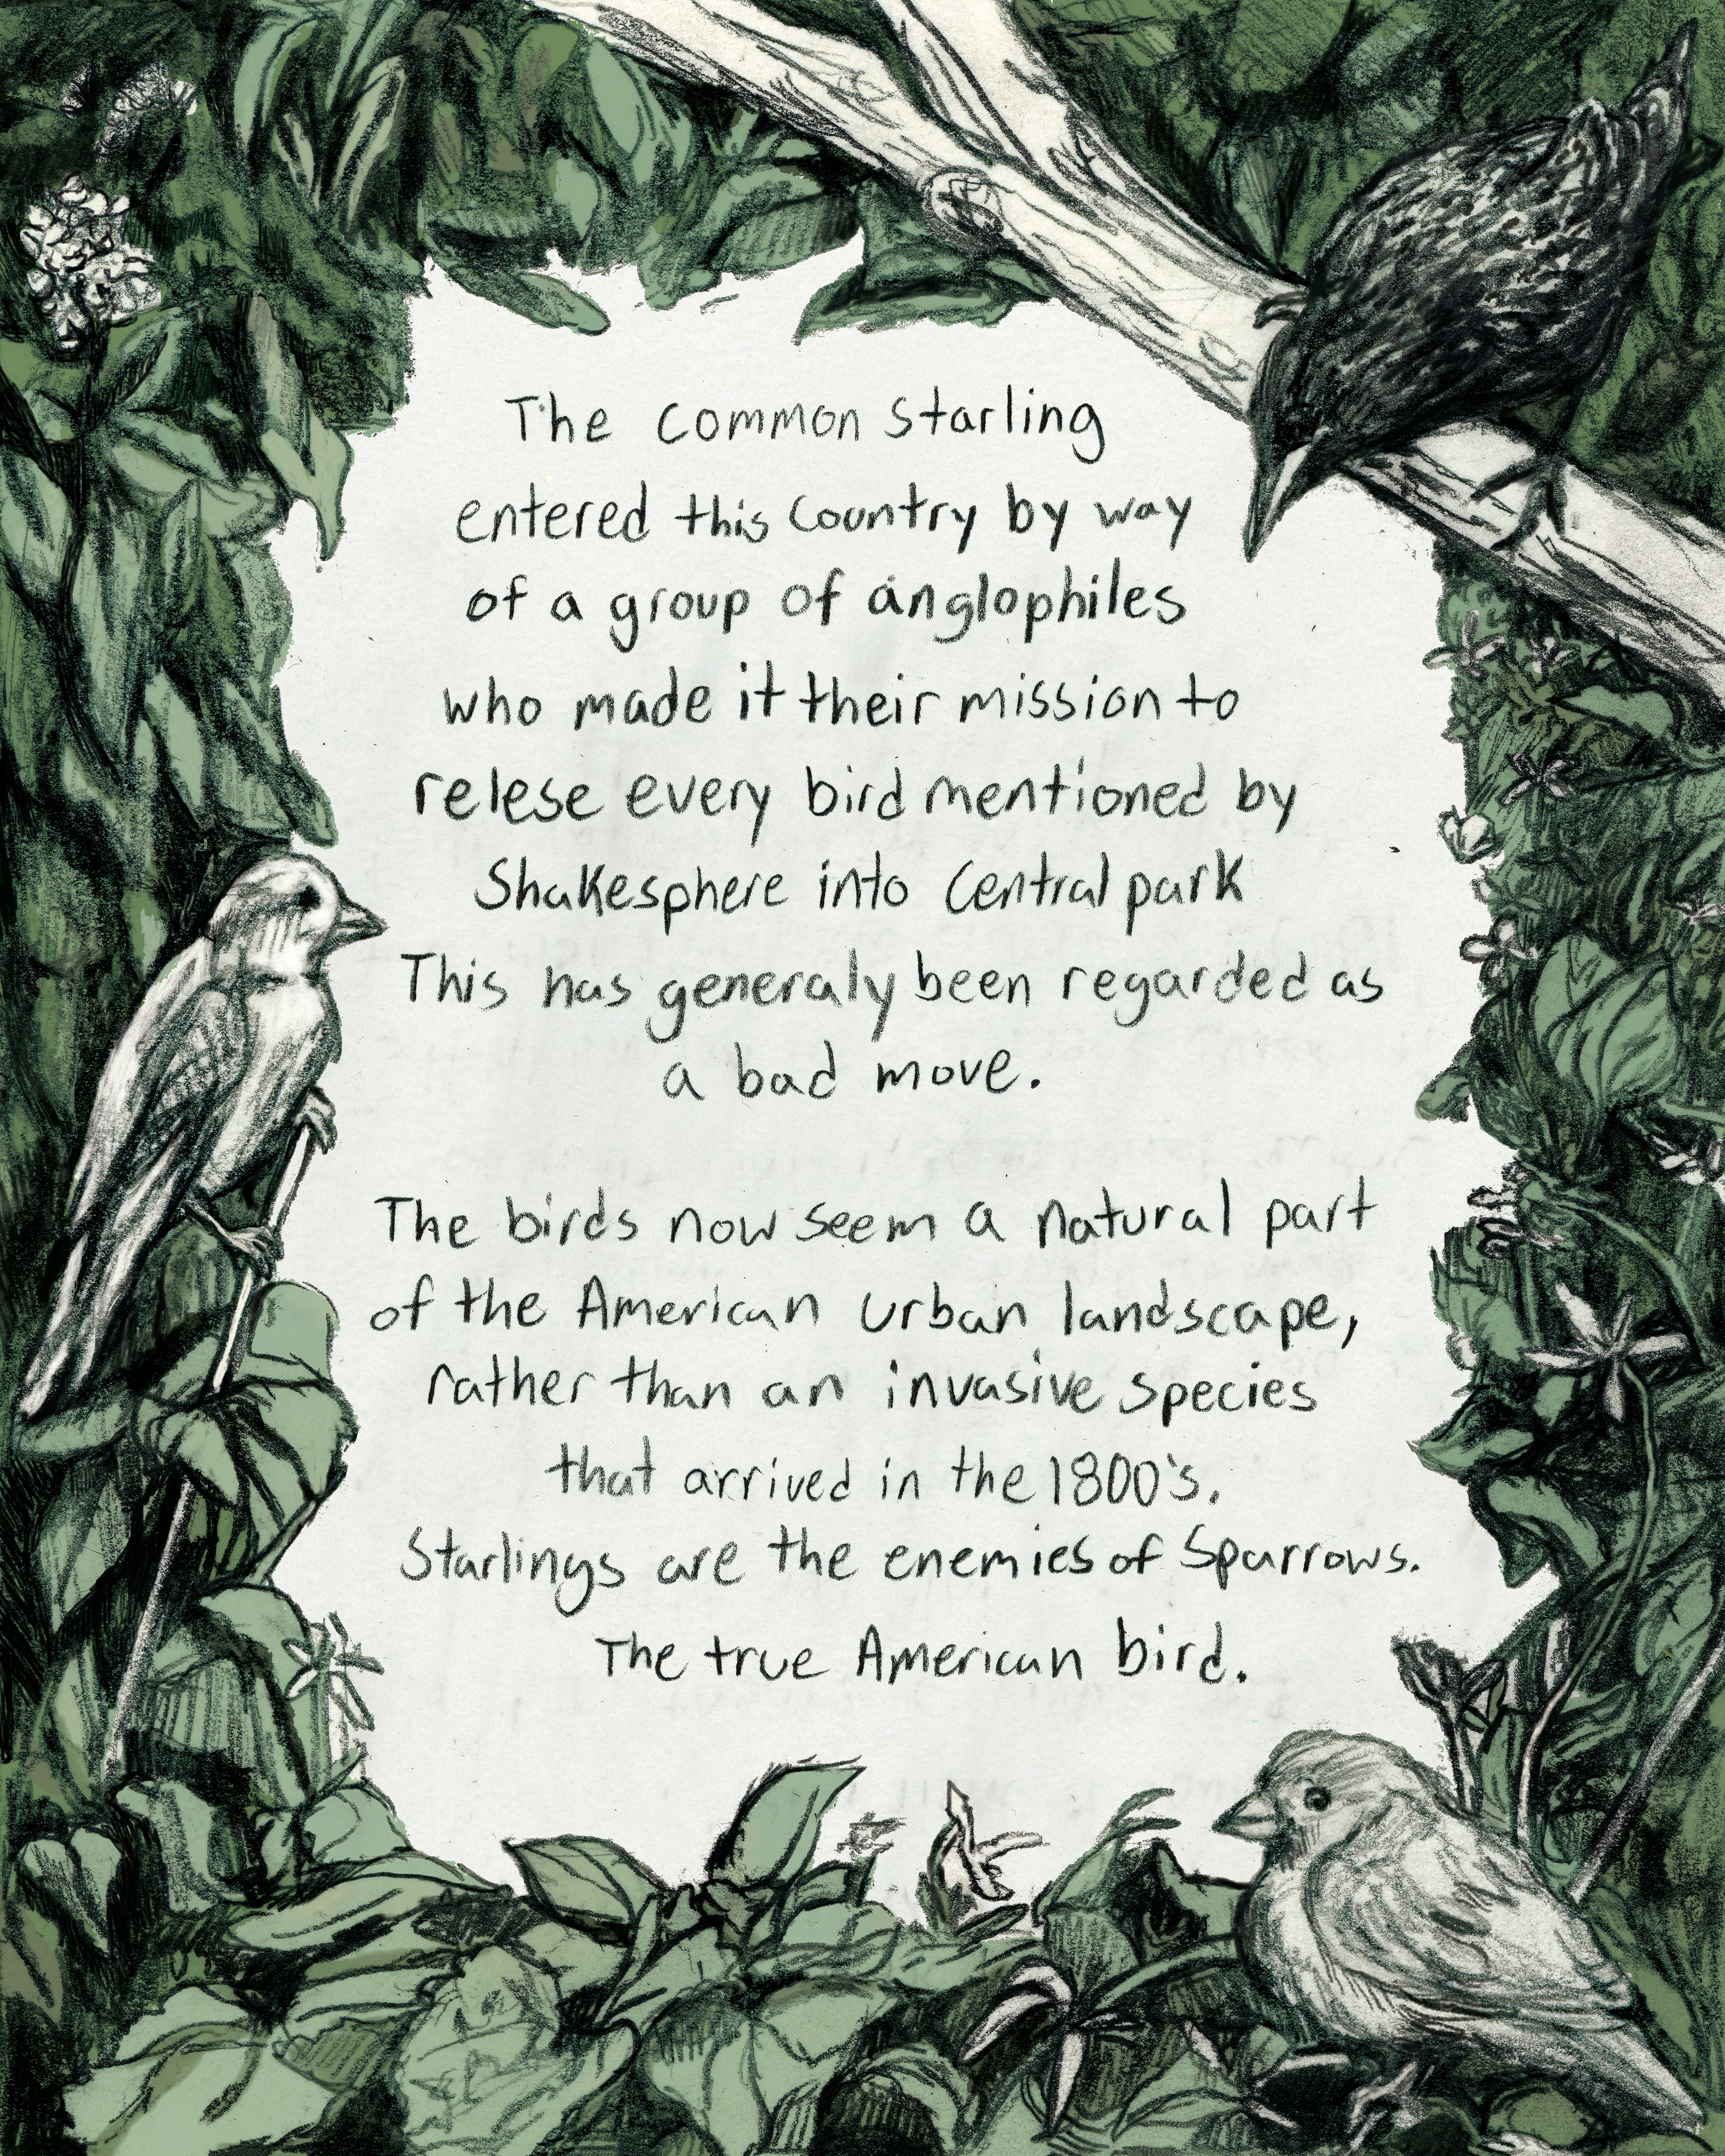 The Common Starling
entered this Country by way
of a group of anglophiles
who made it their mission to
relese every bird mentioned by
Shakesphere into Central park
This has generaly been regarded as
a bad move.
The birds now seem a natural part
of the American urban landscape,
rather than an invasive species
that arrived in the 1800's.
Starlings are the enemies of Sparrows.
The true American bird.